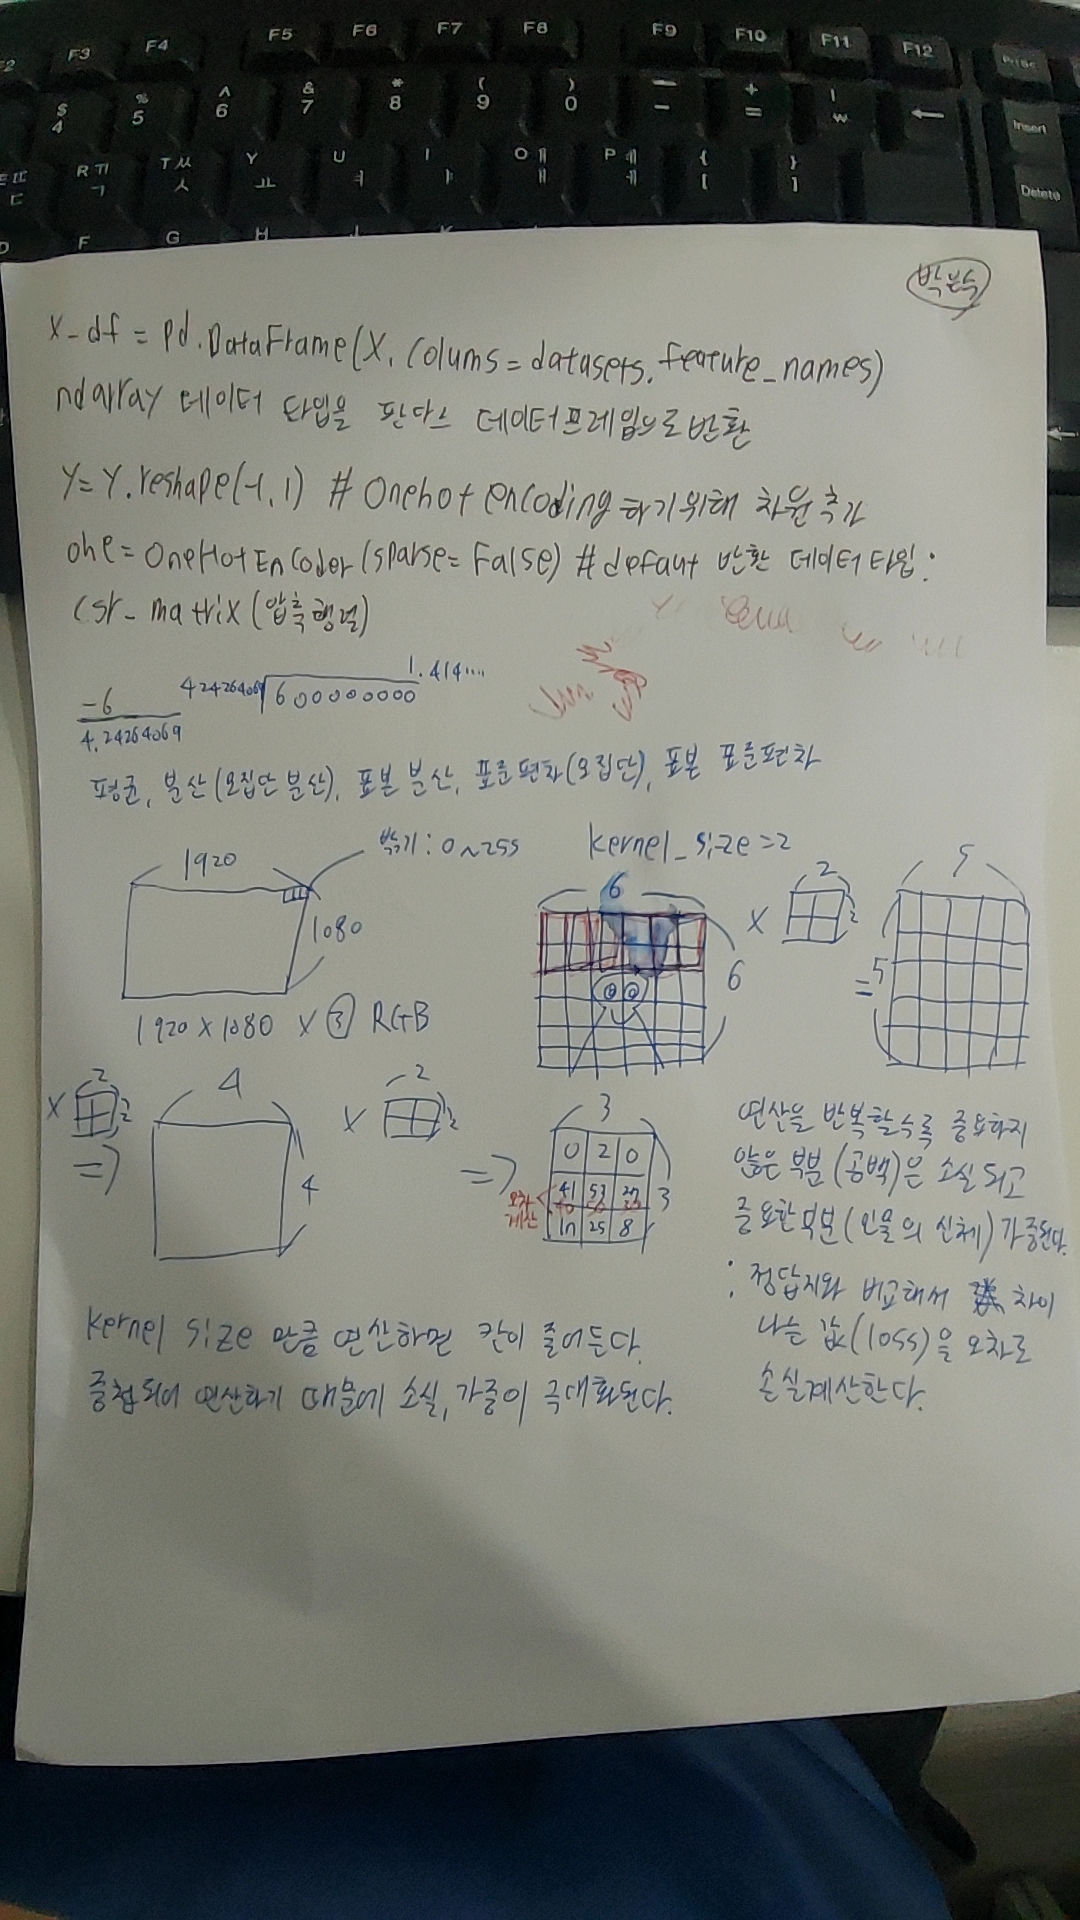 F3 F4 F5 F6 F7 F8 F9 F10 F11 F12
$ 4 % 5 ^ 6 & 7 * 8 ( 9 ) 0 — - + = | ₩ ←
R ㄲ ㄱ T ㅆ ㅅ Y ㅛ U ㅕ I ㅑ O ㅒ ㅐ P ㅖ ㅔ { [ } ]
Insert
Delete
F G H
박은수
X_df = pd.DataFrame(X, Colums = datasets.feature_names)
ndarray 데이터 타입을 판다스 데이터프레임으로 반환
Y = Y.reshape(-1, 1) # Onehot encoding 하기위해 차원 추가
ohe = OneHotEncoder (sparse = False) # defaut 반환 데이터 타입 :
csr_matrix (압축 행렬)
1.414....
-6
424264069 600000000
4.24264069
평균, 분산(모집단 분산), 표본 분산, 표준편차(모집단), 표본 표준편차
1920
밝기 : 0~255
1080
1920 x 1080 x ③ RGB
kernel_size = 2
6
6
x
2
2
=
5
5
x
2
2
=>
4
4
x
2
2
=>
3
3
0 2 0
41 53 27
17 25 8
오차
계산
연산을 반복할수록 중요하지
않은 부분 (공백)은 소실되고
중요한 부분 (인물의 신체) 가중된다.
: 정답지와 비교해서 차이
나는 값(loss)을 오차로
손실계산한다.
kernel size 만큼 연산하면 칸이 줄어든다.
중첩되어 연산하기 때문에 소실, 가중이 극대화된다.